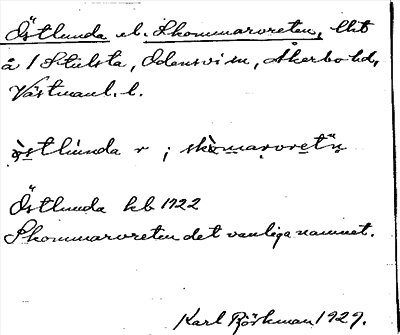 Östlunda el. Skommarvreten, lht
å 1 Stulsta, Odensvi sn, Åkerbo hd,
Västmanl. l.
ò̱stlùnda r ; skò̱marvretn̥
Östlunda hb 1922
Skommarvreten det vanliga namnet.
Karl Björkman 1929.